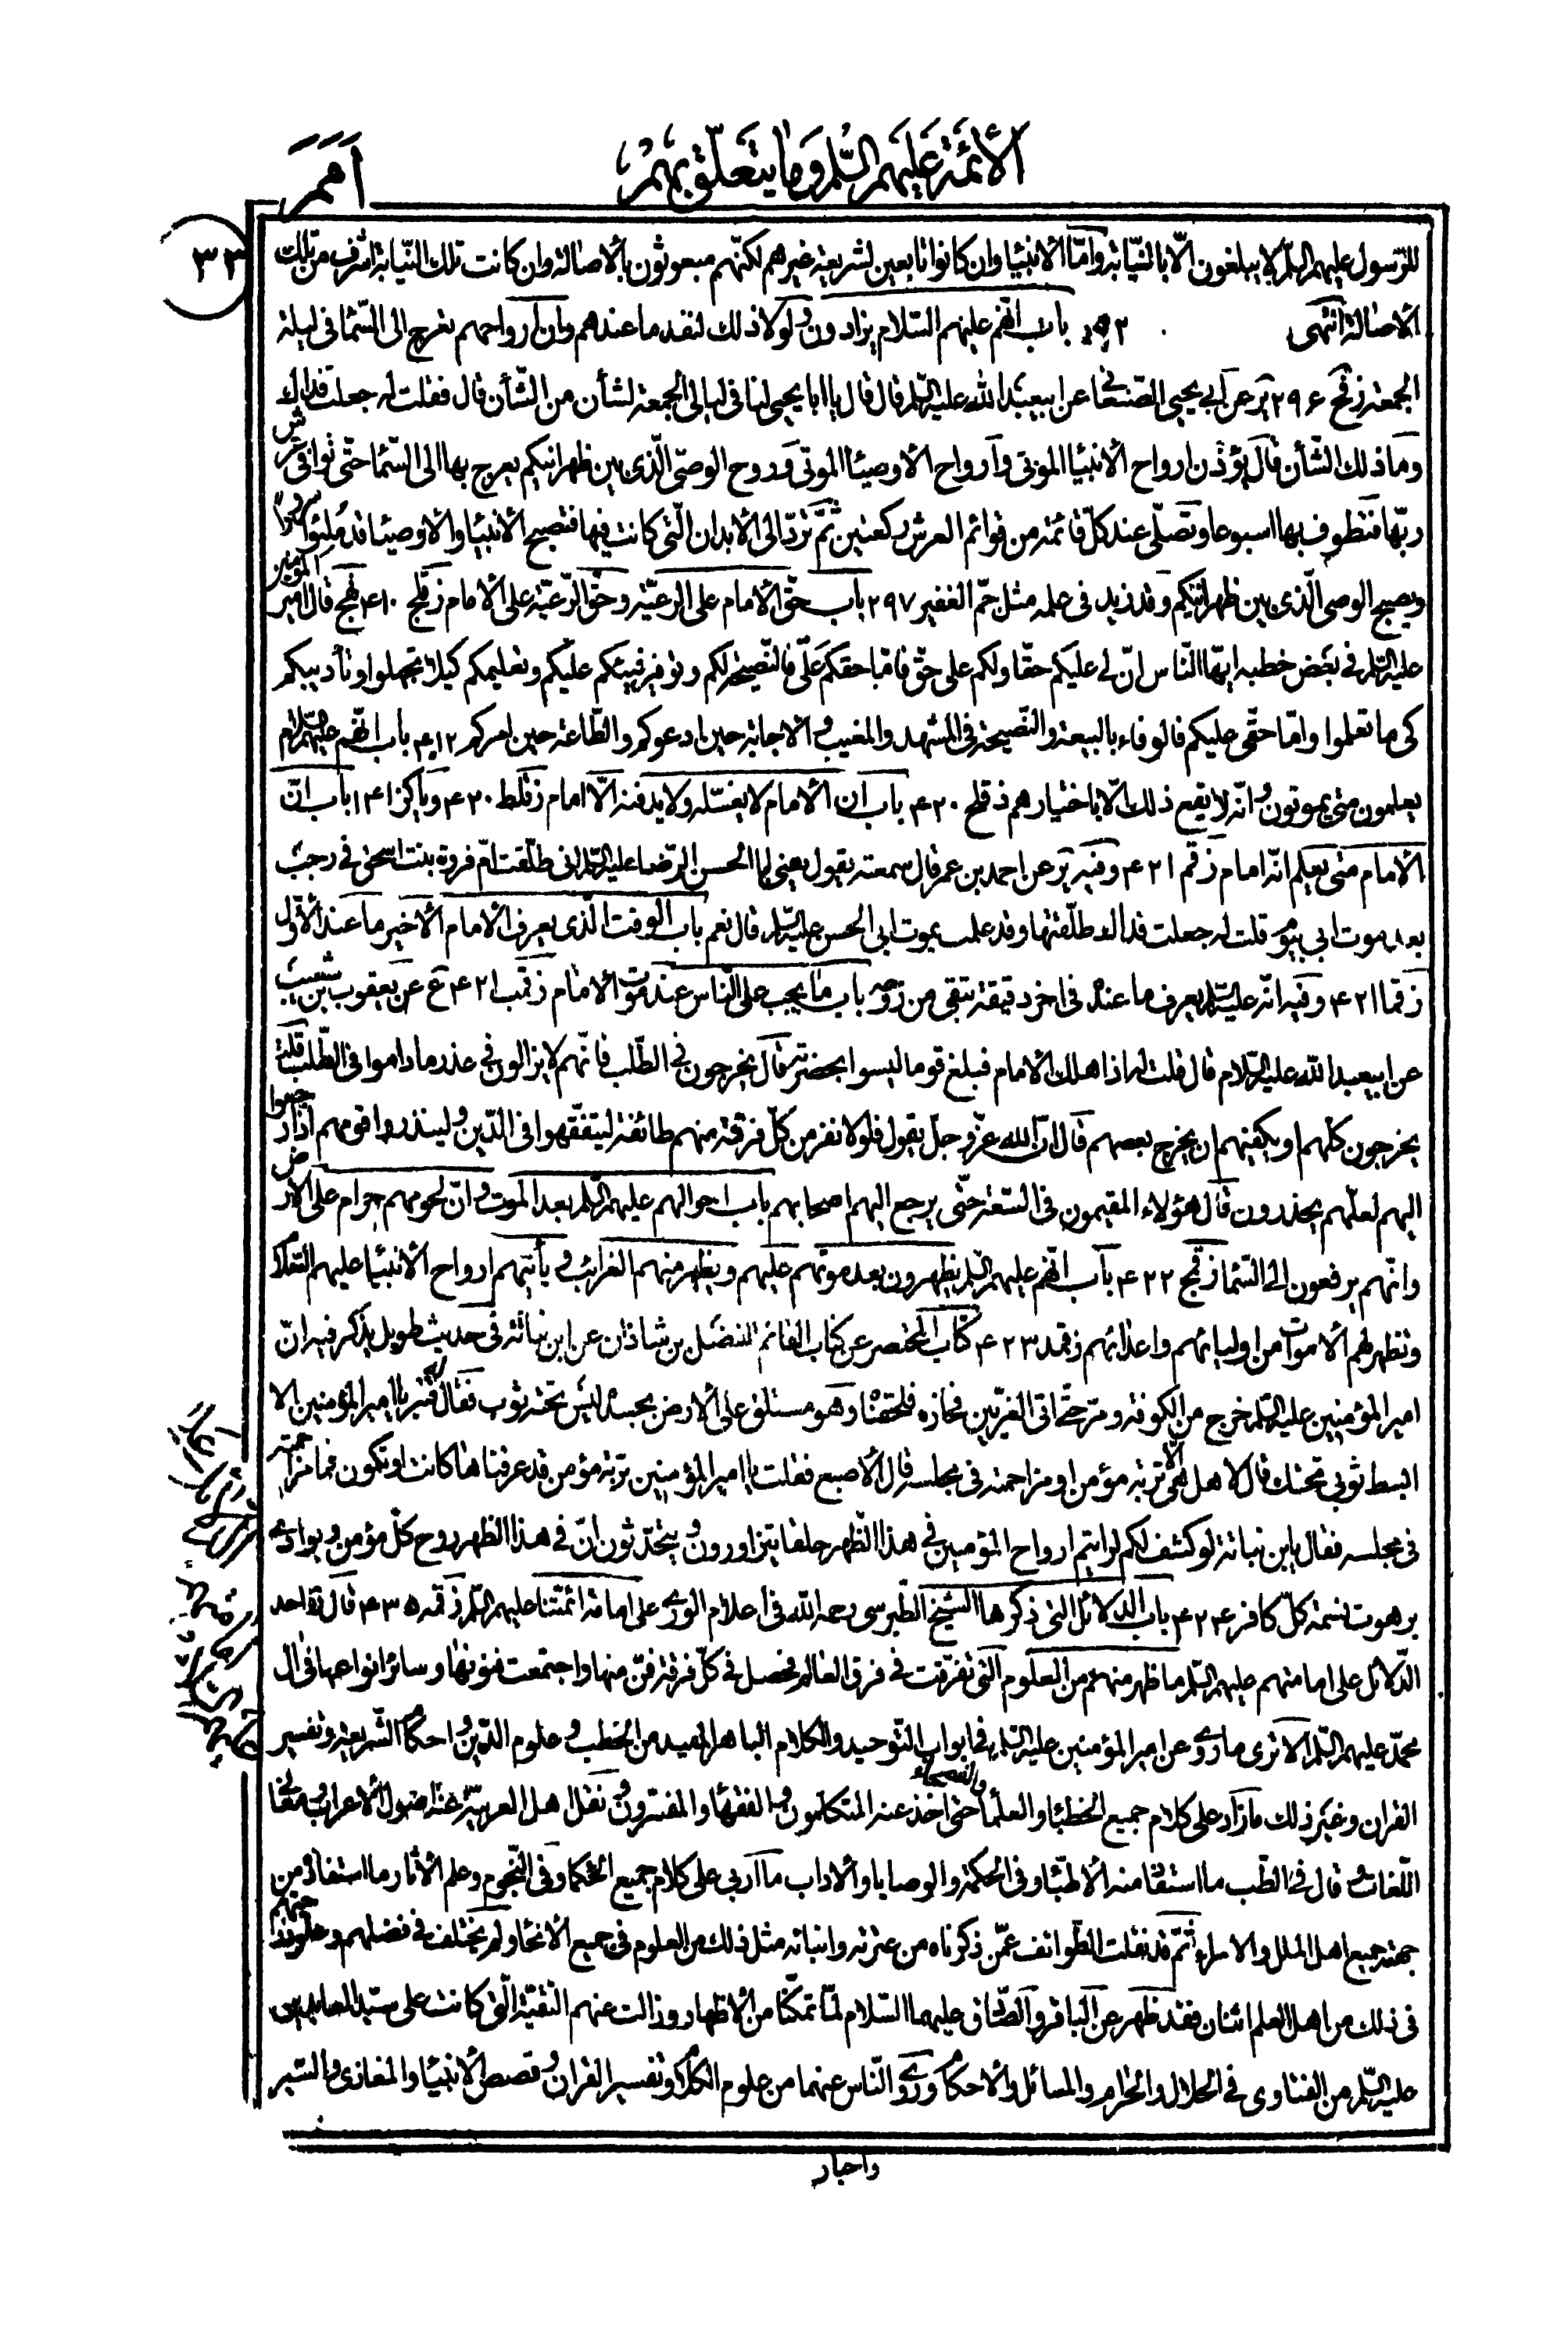 الأئمة عليهم السلم وما يتعلق بهم
أمم
٣٣
للرسول عليهم السلم لا يبلغون الّا بالنيابة وامّا الانبيا وان كانوا تابعين لشريعة غيرهم لكنّهم مبعوثون بالاصالة وان كانت تلك النيابة اشرف من تلك
الاصالة انتهى باب انّهم عليهم السلام يزادون ولولا ذلك لنفد ما عندهم وان ارواحهم تعرج الى السما في ليلة
الجمعة زفح ٢٩۶ ير عن ابي يحيى الصنعاني عن ابيعبد الله عليه السلم قال قال يا ابا يحيى لنا في ليالي الجمعة لشأن من الشأن قال فقلت له جعلت فداك
وما ذلك الشأن قال يؤذن ارواح الانبيا الموتى وارواح الاوصيا الموتى وروح الوصي الّذي بين ظهرانيكم يعرج بها الى السما حتّى توافي عرش
ربّها فتطوف بها اسبوعا وتصلّي عند كلّ قائمة من قوائم العرش ركعتين ثمّ تردّ الى الابدان الّتي كانت فيها فتصبح الانبيا والاوصيا قد ملئوا سرورا
ويصبح الوصي الّذي بين ظهرانيكم وقد زيد في علمه مثل جمّ الغفير ٢٩٧ باب حقّ الامام على الرعيّة وحقّ الرّعيّة على الامام زقلج ۴١٠ نهج قال امير المؤمنين
عليه السلم في بعض خطبه ايّها النّاس انّ لي عليكم حقّا ولكم علي حقّ فامّا حقكم عليّ فالنّصيحة لكم وتوفير فيئكم عليكم وتعليمكم كيلا تجهلوا وتأديبكم
كي ما تعلموا وامّا حقّي عليكم فالوفاء بالبيعة والنّصيحة في المشهد والمغيب والاجابة حين ادعوكم والطّاعة حين امركم ۴١٢ باب انّهم عليهم السلام
يعلمون متى يموتون وانّه لا يقع ذلك الّا باختيارهم ذقلح ۴٢٠ باب ان الامام لا يغسّله ولا يدفنه الّا امام زقلط ۴٢٠ ويا كز ١۴١ باب انّ
الامام متى يعلم انّه امام زقم ۴٢١ وفيه ير عن احمد بن عمر قال سمعته يقول يعني ابا الحسن الرّضا عليه السلم اني طلّقت امّ فروة بنت اسحق في رجب
بعد موت ابي بيوم قلت له جعلت فداك طلّقتها وقد علمت بموت ابي الحسن عليه السلم قال نعم باب الوقت الّذي يعرف الامام الاخير ما عند الاوّل
زقما ۴٢١ وفيه انّه عليه السلم يعرف ما عنده في اخر دقيقة تبقى من روحه باب ما يجب على النّاس عند موت الامام زقمب ۴٢١ ع عن يعقوب بن شعيب
عن ابيعبد الله عليه السلام قال قلت له اذا هلك الامام فبلغ قوما ليسوا بحضرته قال يخرجون في الطّلب فانّهم لا يزالون في عذر ما داموا في الطّلب قلت
يخرجون كلّهم او يكفيهم ان يخرج بعضهم قال انّ الله عزّ وجلّ يقول فلولا نفر من كلّ فرقة منهم طائفة ليتفقّهوا في الدّين ولينذروا قومهم اذا رجعوا
اليهم لعلّهم يحذرون قال هؤلاء المقيمون في السّعة حتّى يرجع اليهم اصحابهم باب احوالهم عليهم السلم بعد الموت وانّ لحومهم حرام على الارض
وانّهم يرفعون الى السّما زقمج ۴٢٢ باب انّهم عليهم السلم يظهرون بعد موتهم عليهم ويظهر منهم الغرائب ويأتيهم ارواح الانبيا عليهم السّلام
وتظهر لهم الاموات من اوليائهم واعدائهم زقمد ۴٢٣ كتاب المختصر عن كتاب القائم للفضل بن شاذان عن ابن نباتة في حديث طويل يذكر فيه انّ
امير المؤمنين عليه السلم خرج من الكوفة ومرّ حتّى اتى الغريّين فجازه فلحقناه وهو مستلق على الارض بجسده ليس تحته ثوب فقال له قنبر يا امير المؤمنين الا
ابسط ثوبي تحتك قال لا هل هي الّا تربة مؤمن او مزاحمته في مجلسه قال الاصبغ فقلت يا امير المؤمنين تربة مؤمن قد عرفناها كانت او تكون فما مزاحمته
في مجلسه فقال يابن نباتة لو كشف لكم لرايتم ارواح المؤمنين في هذا الظّهر حلقا يتزاورون ويتحدّثون انّ في هذا الظهر روح كلّ مؤمن وبوادي
برهوت نسمة كلّ كافر ۴٢۴ باب الدلائل التي ذكرها الشيخ الطّبرسي رحمه الله في اعلام الورى على امامة ائمّتنا عليهم السلم زقمه ۴٣۵ قال ره احد
الدّلائل على امامتهم عليهم السلم ما ظهر منهم من العلوم الّتي تفرّقت في فرق العالم فحصل في كلّ فرقة فنّ منها واجتمعت فنونها وسائر انواعها في ال
محمّد عليهم السلم الا ترى ما روي عن امير المؤمنين عليه السلم في ابواب التّوحيد والكلام الباهر المفيد من الخطب وعلوم الدّين واحكام الشّريعة وتفسير
القران وغير ذلك ما زاد على كلام جميع الخطبا والعلما والفصحاء حتى اخذ عنه المتكلّمون والفقها والمفسّرون ونقل اهل العربيّة عنه اصول الاعراب ومعاني
اللّغات وقال في الطّب ما استفا منه الاطبّا وفي الحكمة والوصايا والاداب ما اربى على كلام جميع الحكما وفي النّجوم وعلم الاثار ما استفاده من
جهته جميع اهل الملل والاراء ثمّ قد نقلت الطّوائف عمّن ذكرناه من عترته وابنائه مثل ذلك من العلوم في جميع الانحا ولم يختلف في فضلهم وعلوّ درجتهم
في ذلك من اهل العلم اثنان فقد ظهر عن الباقر والصّادق عليهما السّلام لمّا تمكّنا من الاظهار وزالت عنهم التقيّة الّتي كانت على سيّد العابدين
عليه السلم من الفتاوى في الحلال والحرام والمسائل والاحكام وروى النّاس عنهما من علوم الكلام وتفسير القران وقصص الانبيا والمغازي والسّير
واخبار